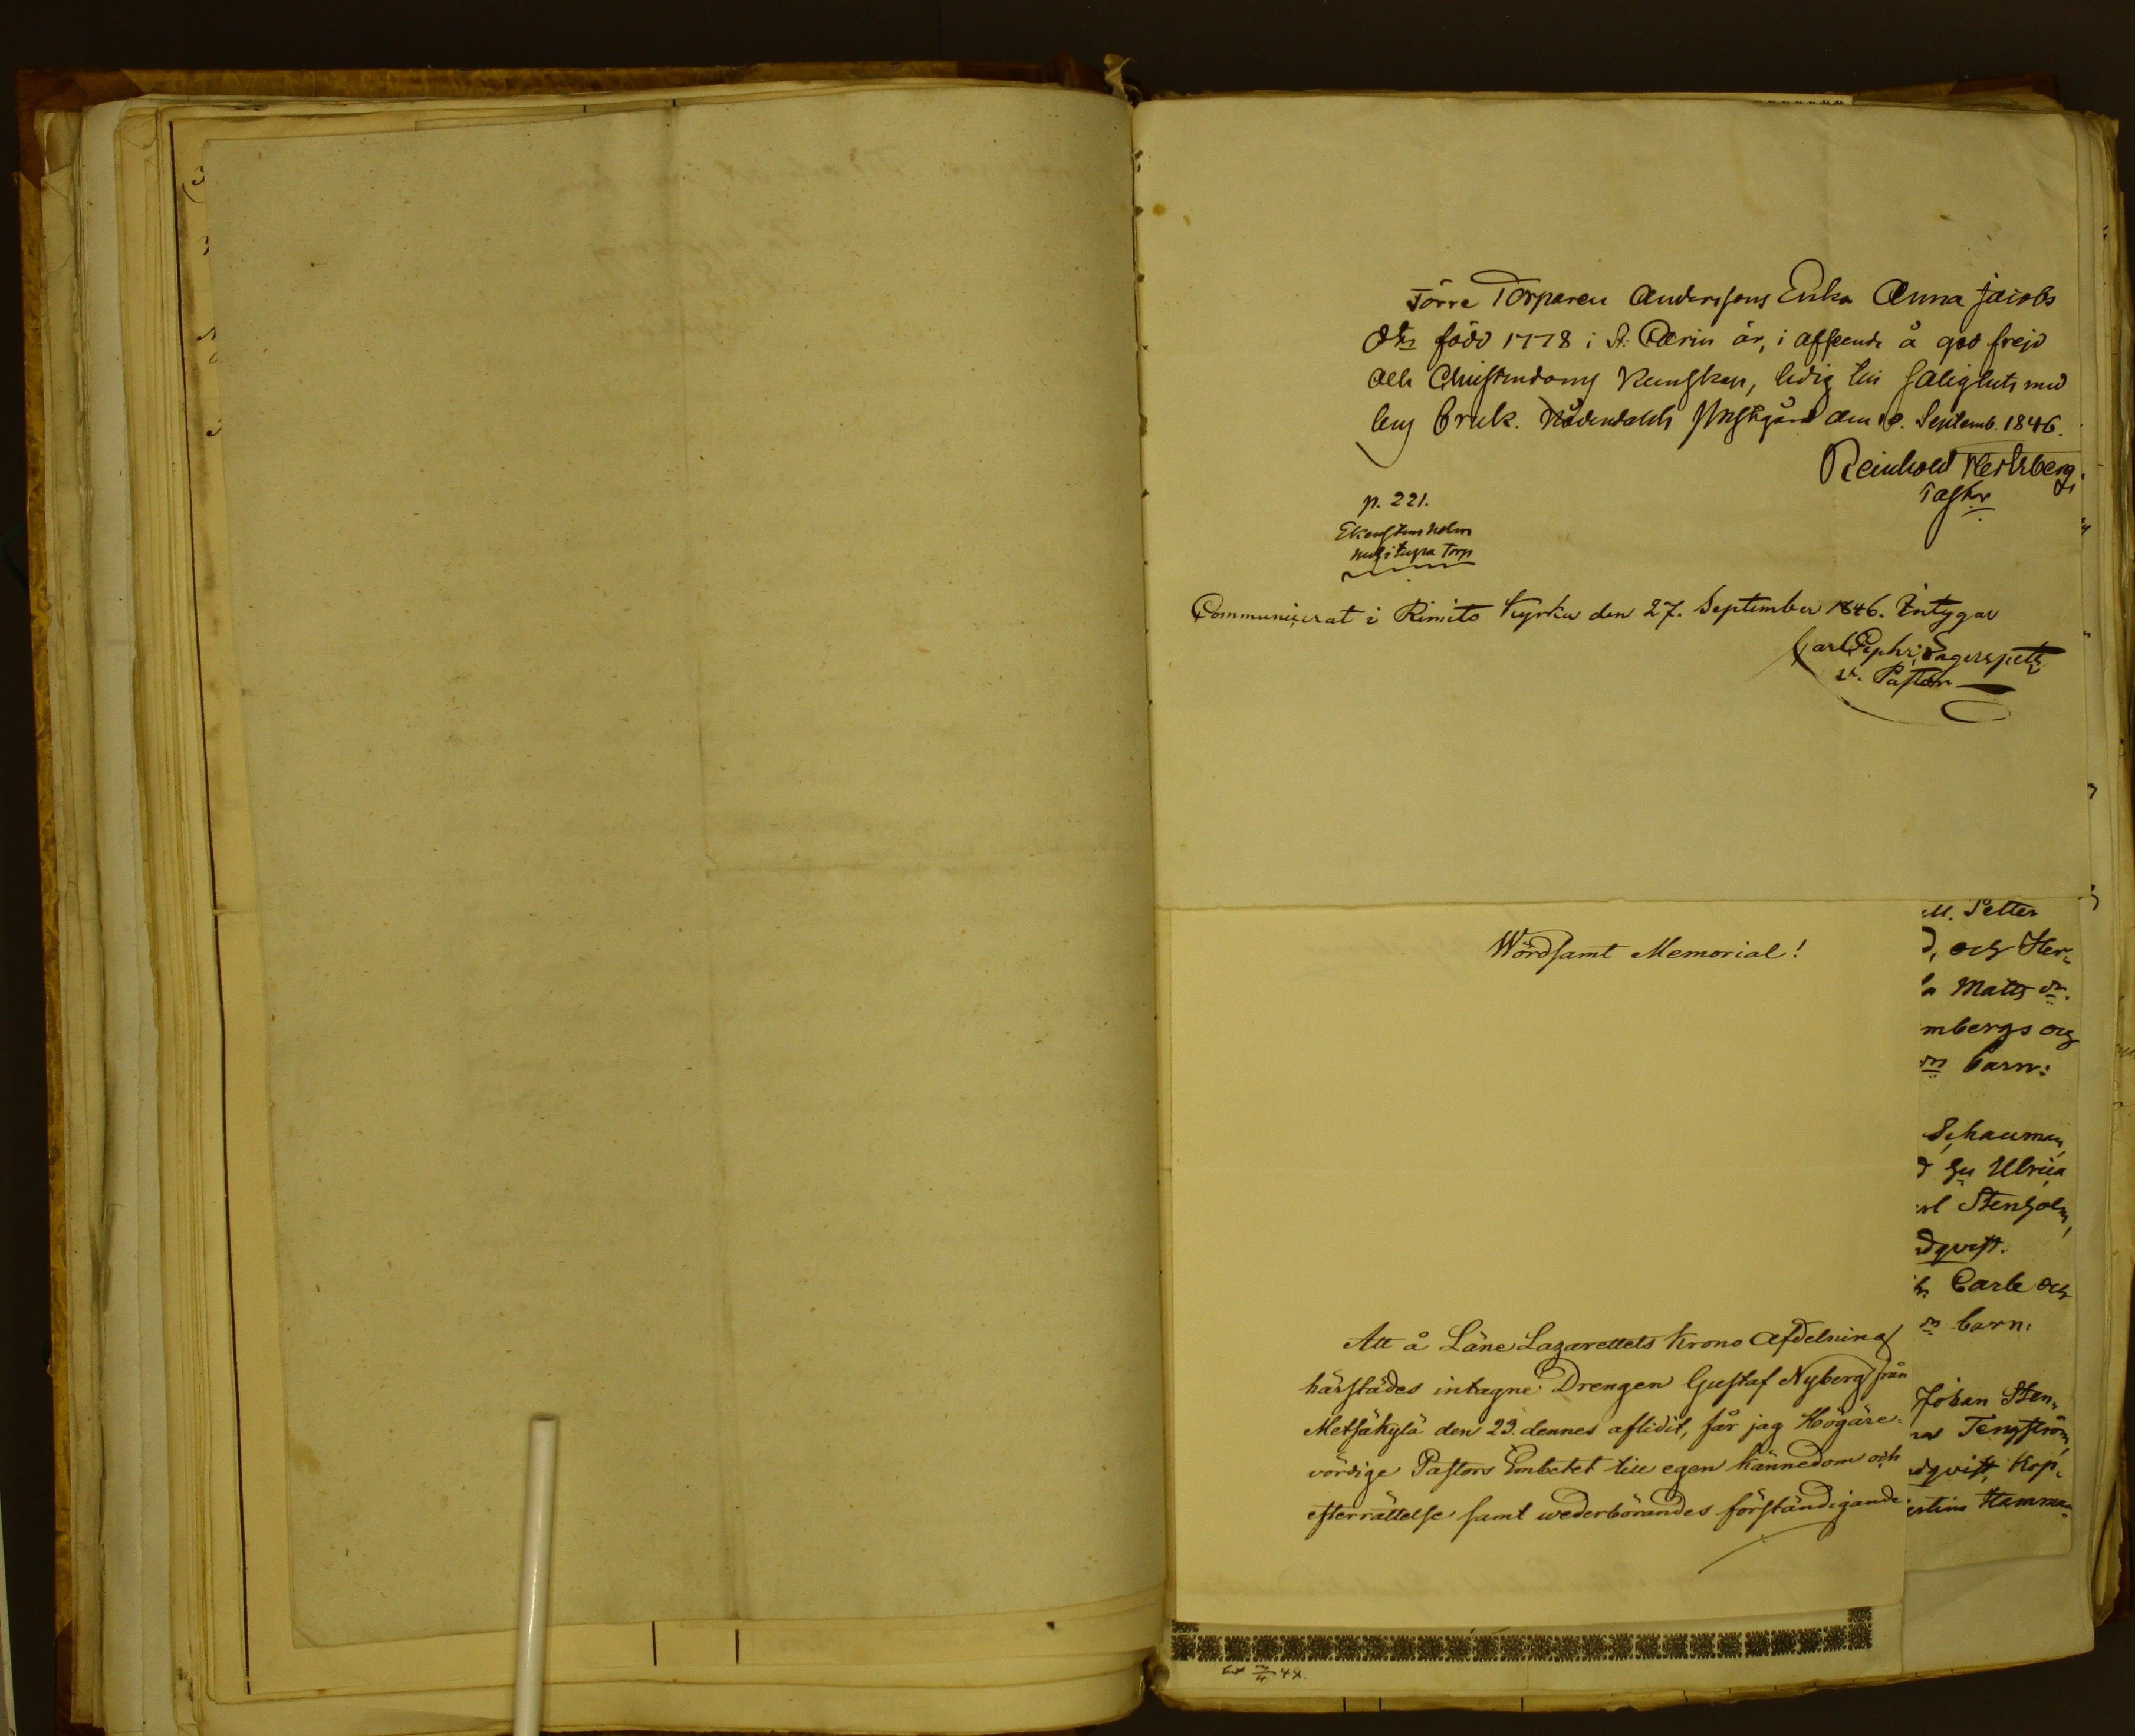 Förre Torparen Anderssons Enka Anna Jacobs
dtr född 1778 i St: Carin är, i afseende å god frejd
och Christendoms Kunskap, ledig till Salighets med
lens bruk. Nådendahls Prestgård den 10. Septemb. 1846.
Reinhold Hertzberg,
Pastor
p. 221.
Torp
Communicerat i Rimito Kyrka den 27. September 1846. Intygar
Carl Fagerspetz
v. Pastor
Wördsamt Memorial!
Att å Läne Lazarettets Krono Afdelning
härstädes intagne Drengen Gustaf Nyberg från
Metsäkylä den 23. dennes aflidit, får jag Högäre-
vördige Pastors Embetet till egen kännedom och
efterrättelse samt wederbörandes förständigande
M. Petter
d, och Her-
a Matts dr.
mbergs och
barn:
Schauman,
Hu Ulrica
rl Stenholm,
dqvist.
Carle och
barn:
Johan Sten-
Tengström,
dqvist, Kop-
stins Hamma-